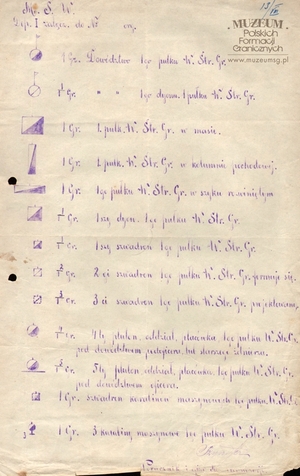 Dep. I
13/IV
MUZEUM
Polskich
Formacji
Granicznych
www.muzeumsg.pl
1 Gr. Dowództwo 1go pułku W. Str. Gr.
1/1 Gr. " " 1go dyonu 1 pułku W. Str. Gr.
1 Gr. 1. pułk W. Str. Gr. w masie.
1 Gr. 1. pułk W. Str. Gr. w kolumnie pochodowej.
1 Gr. 1go pułku W. Str. Gr. w szyku rozwiniętym
1/1 Gr. 1szy dyon 1go pułku W. Str. Gr.
1/1 Gr. 1szy szwadron 1go pułku W. Str. Gr.
2/1 Gr. 2gi szwadron 1go pułku W. Str. Gr. formuje się.
3/1 Gr. 3ci szwadron 1go pułku W. Str. Gr. projektowany.
4/1 Gr. 4ty pluton, oddział, placówka 1go pułku W. Str. Gr.
pod dowództwem podoficera lub starszego żołnierza.
5/1 Gr. 5ty pluton, oddział, placówka 1go pułku W. Str. Gr.
pod dowództwem oficera.
1 Gr. szwadron karabinów maszynowych 1go pułku W. Str. Gr.
1 Gr. 3 karabiny maszynowe 1go pułku W. Str. Gr.